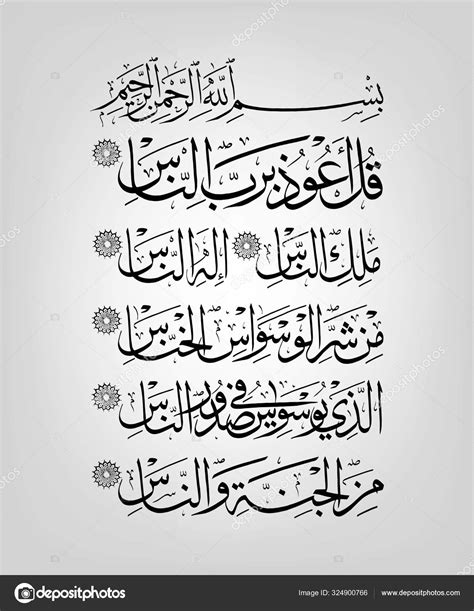 بِسْمِ اللَّهِ الرَّحْمَنِ الرَّحِيمِ
قُلْ أَعُوذُ بِرَبِّ النَّاسِ
مَلِكِ النَّاسِ إِلَهِ النَّاسِ
مِنْ شَرِّ الْوَسْوَاسِ الْخَنَّاسِ
الَّذِي يُوَسْوِسُ فِي صُدُورِ النَّاسِ
مِنَ الْجِنَّةِ وَالنَّاسِ
depositphotos
Image ID: 324900766
www.depositphotos.com